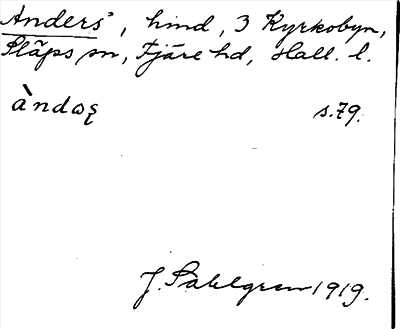 Anders', hmd, 3 Kyrkobyn,
Släps sn, Fjäre hd, Hall. l.
àndωş s.79.
J. Sahlgren 1919.